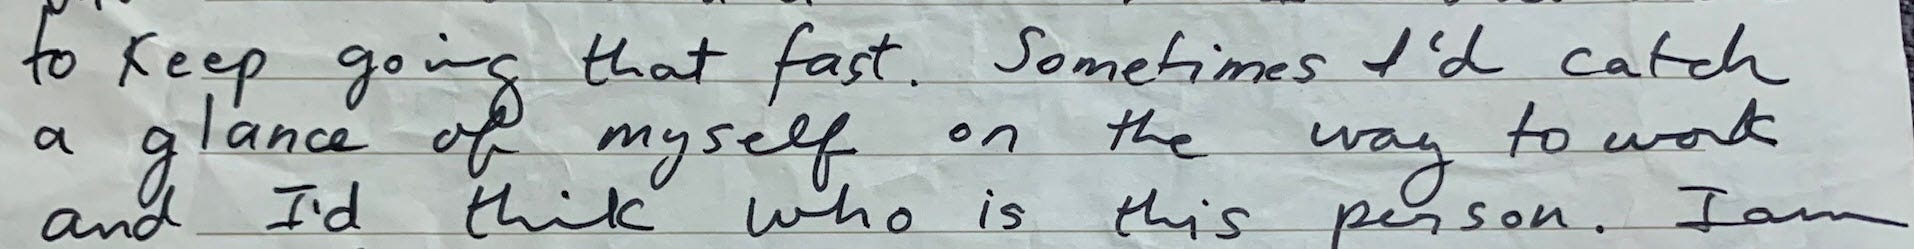 to keep going that fast. Sometimes I'd catch
a glance of myself on the way to work
and I'd thik who is this person. I am